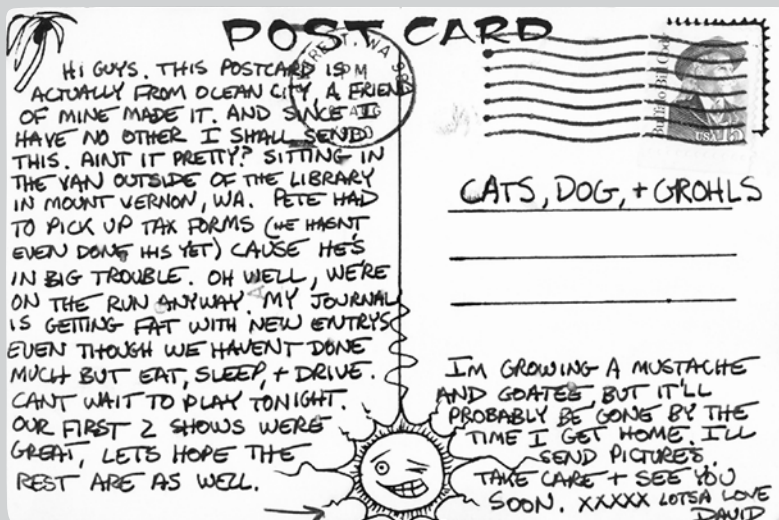 POST CARD
HI GUYS. THIS POSTCARD IS
ACTUALLY FROM OCEAN CITY. A FRIEND
OF MINE MADE IT. AND SINCE I
HAVE NO OTHER I SHALL SEND
THIS. AINT IT PRETTY? SITTING IN
THE VAN OUTSIDE OF THE LIBRARY
IN MOUNT VERNON, WA. PETE HAD
TO PICK UP TAX FORMS (HE HASNT
EVEN DONE HIS YET) CAUSE HE'S
IN BIG TROUBLE. OH WELL, WE'RE
ON THE RUN ANYWAY. MY JOURNAL
IS GETTING FAT WITH NEW ENTRYS
EVEN THOUGH WE HAVENT DONE
MUCH BUT EAT, SLEEP, + DRIVE.
CANT WAIT TO PLAY TONIGHT.
OUR FIRST 2 SHOWS WERE
GREAT, LETS HOPE THE
REST ARE AS WELL.
WA
PM
Buffalo Bill Cody
USA 15
CATS, DOG, + GROHLS
IM GROWING A MUSTACHE
AND GOATEE, BUT IT'LL
PROBABLY BE GONE BY THE
TIME I GET HOME. I'LL
SEND PICTURES.
TAKE CARE + SEE YOU
SOON. XXXXX LOTSA LOVE
DAVID